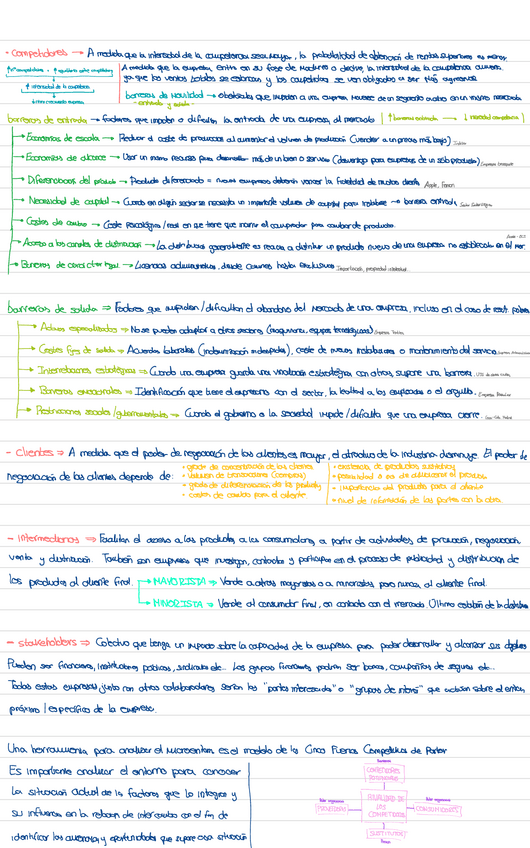 - Competidores → A medida que la intensidad de la competencia sea mayor, la probabilidad de obtención de rentas superiores es menor.
A medida que la empresa entra en su fase de madurez o declive, la intensidad de la competencia aumenta
ya que las ventas totales se estancan y los competidores se ven obligados a ser más agresivos
↑ intensidad de la competencia
barreras de movilidad → obstáculos que impiden a una empresa moverse de un segmento a otro en un mismo mercado
- entrada y salida -
barreras de entrada → factores que impiden o dificultan la entrada de una empresa al mercado
↑ barreras entrada → ↓ intensidad competencia
→ Economías de escala → Reducir el coste de producción al aumentar el volumen de producción (vender a un precio más bajo)
→ Economías de alcance → Usar un mismo recurso para desarrollar más de un bien o servicio (desventaja para empresas de un solo producto)
→ Diferenciación del producto → Producto diferenciado = nuevas empresas deberán vencer la fidelidad de muchos clientes Apple,
→ Necesidad de capital → Cuando en algún sector se necesita un importante volumen de capital para instalarse → barrera entrada
→ Costes de cambio → Coste psicológico/real en que tiene que incurrir el comprador para cambiar de producto
→ Acceso a los canales de distribución → La distribuidora generalmente es reacia a distribuir un producto nuevo de una empresa no establecida en el mer.
→ Barreras de carácter legal → Licencias administrativas, desde comunes hasta exclusivas Importación, propiedad intelectual
barreras de salida ⇒ Factores que impiden/dificultan el abandono del mercado de una empresa, incluso en el caso de
→ Activos especializados → No se pueden adaptar a otros sectores (maquinaria, equipos tecnológicos)
→ Costes fijos de salida → Acuerdos laborales (indemnización indemnizados), coste de nuevas instalaciones o mantenimiento del servicio
→ Interrelaciones estratégicas → Cuando una empresa guarda una vinculación estratégica con otras, supone una barrera
→ Barreras emocionales → Identificación que tiene el empresario con el sector, la lealtad a los empleados o el orgullo. Empresa familiar
→ Restricciones sociales/gubernamentales → Cuando el gobierno o la sociedad impide/dificulta que una empresa cierre
- Clientes ⇒ A medida que el poder de negociación de los clientes es mayor, el atractivo de la industria disminuye. El poder de
negociación de los clientes depende de:
• grado de concentración de los clientes
• volumen de transacciones (compras)
• grado de diferenciación de los productos
• costes de cambio para el cliente
• existencia de productos sustitutivos
• posibilidad o no de almacenar el producto
• importancia del producto para el cliente
• nivel de información de las partes con la otra
- Intermediarios ⇒ Facilitan el acceso a los productos a los consumidores a partir de actividades de promoción, negociación
venta y distribución. También son empresas que investigan, contactan y participan en el proceso de publicidad y distribución de
los productos al cliente final.
→ MAYORISTA → Vende a otros mayoristas o a minoristas pero nunca al cliente final.
→ MINORISTA → Vende al consumidor final, en contacto con el mercado. Último eslabón de la
- stakeholders ⇒ Colectivo que tenga un impacto sobre la capacidad de la empresa para poder desarrollar y alcanzar sus objetivos
Pueden ser financieros, instituciones públicas, sindicatos etc... Los grupos financieros podrían ser bancos, compañías de seguros etc...
Todas estas empresas junto con otros colaboradores serían las "partes interesadas" o "grupos de interés" que actúan sobre el entorno
próximo / específico de la empresa.
Una herramienta para analizar el microentorno es el modelo de las Cinco Fuerzas Competitivas de Porter
Es importante analizar el entorno para conocer
la situación actual de los factores que lo integran y
su influencia en la relación de intercambio con el fin de
identificar las amenazas y oportunidades que supone esa situación
COMPETIDORES
POTENCIALES
RIVALIDAD DE
LOS
COMPETIDORES
SUSTITUTIVOS